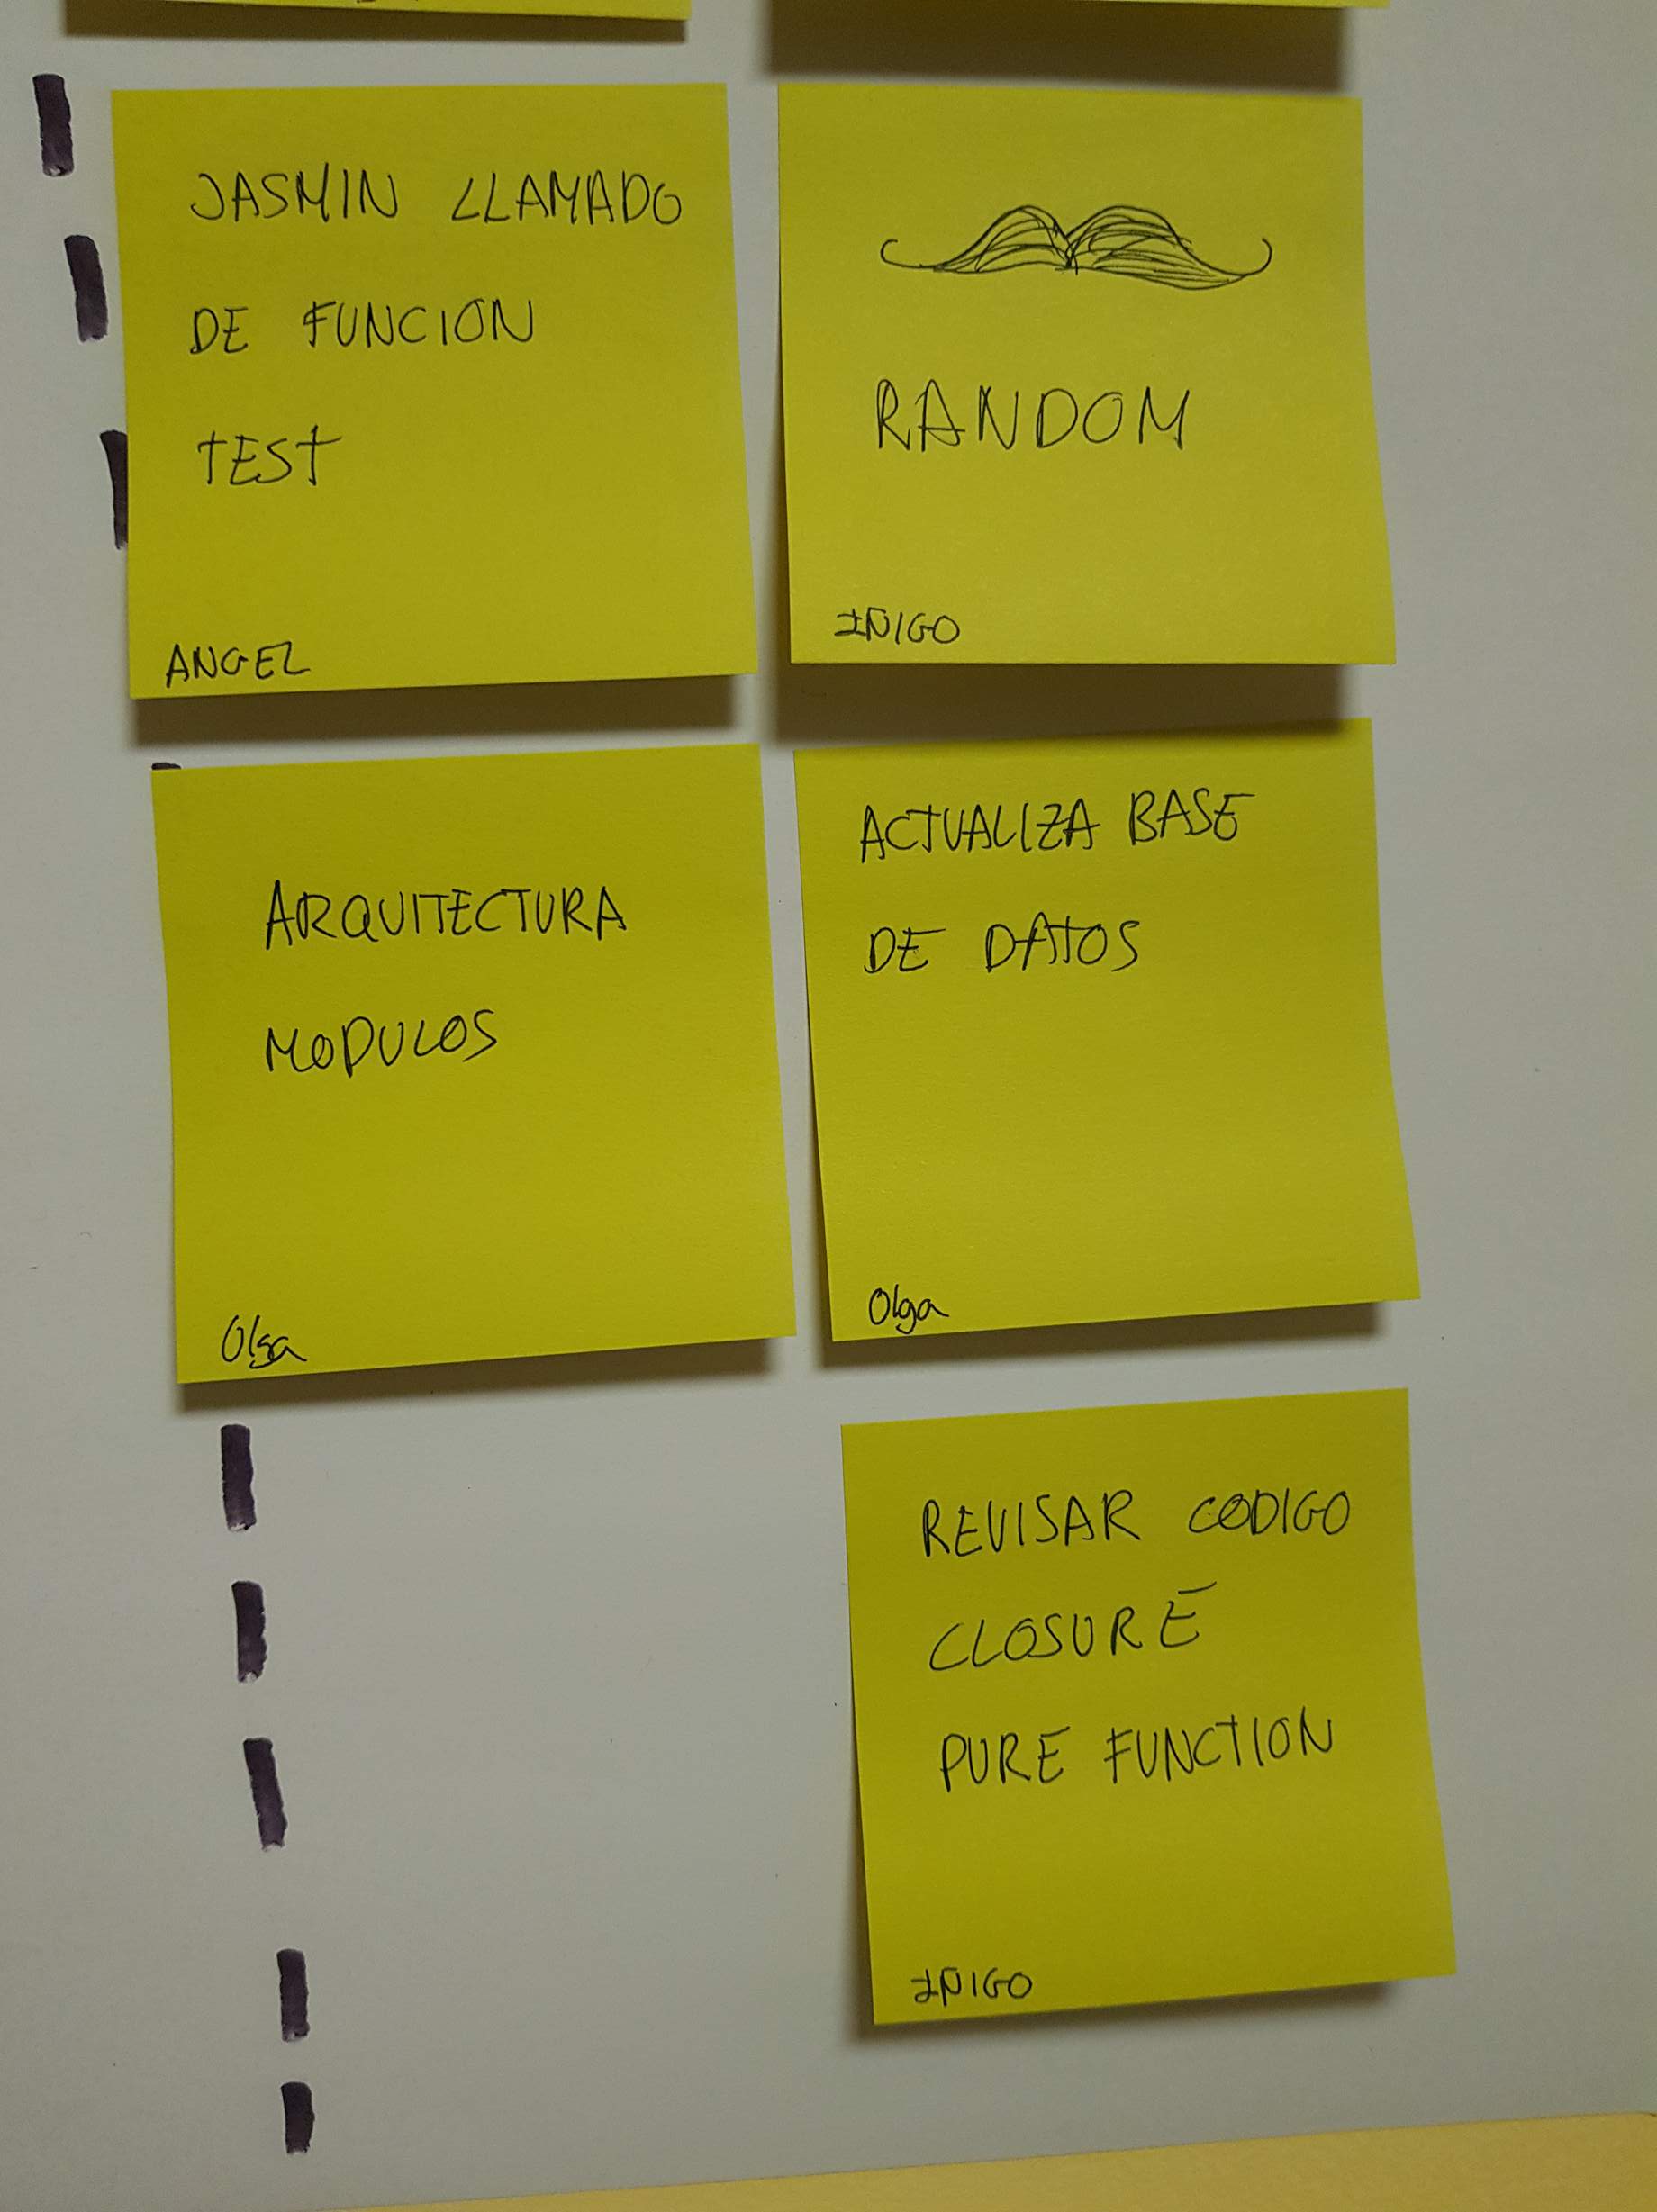 JASMIN LLAMADO
DE FUNCION
TEST
ANGEL
RANDOM
IÑIGO
ARQUITECTURA
MODULOS
Olga
ACTUALIZA BASE
DE DATOS
Olga
REVISAR CODIGO
CLOSURE
PURE FUNCTION
IÑIGO